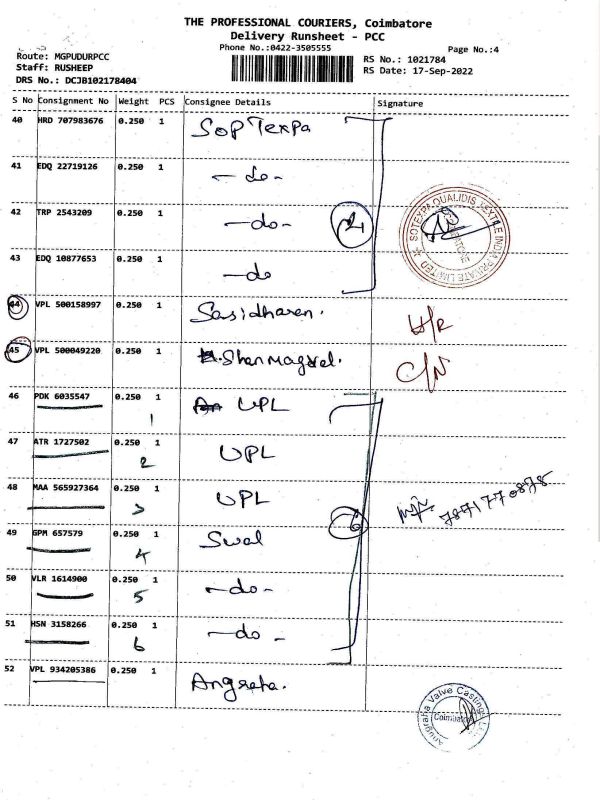 THE PROFESSIONAL COURIERS, Coimbatore
Delivery Runsheet - PCC
Phone No.:0422-3505555
Page No.:4
Route: MGPUDURPCC
Staff: RUSHEEP
DRS No.: DCJB102178404
RS No.: 1021784
RS Date: 17-Sep-2022
S No Consignment No Weight PCS Consignee Details Signature
40 HRD 707983676 0.250 1 SOP Texpa
41 EDQ 22719126 0.250 1 -do-
42 TRP 2543209 0.250 1 -do- 4
43 EDQ 10877653 0.250 1 -do
SOTEXPA QUALIDIS TEXTILE INDIA PRIVATE LIMITED
44 VPL 500158997 0.250 1 Sasidharen.
45 VPL 500049220 0.250 1 Shanmagvel. C/N
46 PDK 6035547 0.250 1 UPL
1
47 ATR 1727502 0.250 1 UPL
2
48 MAA 565927364 0.250 1 UPL
3
6
7871770878
49 GPM 657579 0.250 1 Swal
4
50 VLR 1614900 0.250 1 -do-
5
51 HSN 3158266 0.250 1 -do-
6
52 VPL 934205386 0.250 1 Angraha.
Anugraha Valve Castings
Coimbatore